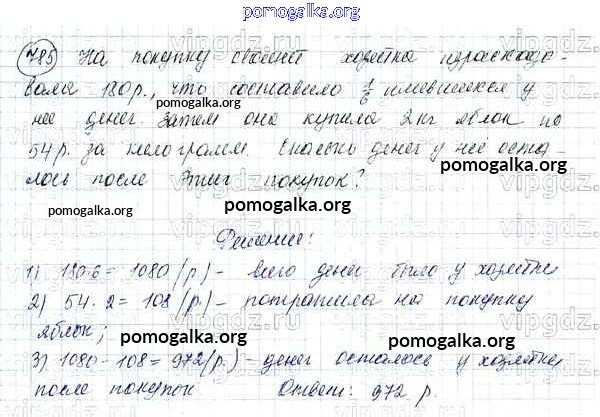 pomogalka.org
785) На покупку овощей хозяйка израсходо-
вала 180 р., что составило 1/6 имевшихся у
pomogalka.org
нее денег. Затем она купила 2 кг яблок по
54 р. за килограмм. Сколько денег у неё оста-
pomogalka.org
лось после этих покупок?
pomogalka.org pomogalka.org
Решение:
1) 180·6 = 1080 (р.) – всего денег было у хозяйки
2) 54 · 2 = 108 (р.) – потратила на покупку
яблок;
pomogalka.org pomogalka.org
3) 1080 - 108 = 972 (р.) - денег осталось у хозяйки
после покупок Ответ: 972 р.
pomogalka.org